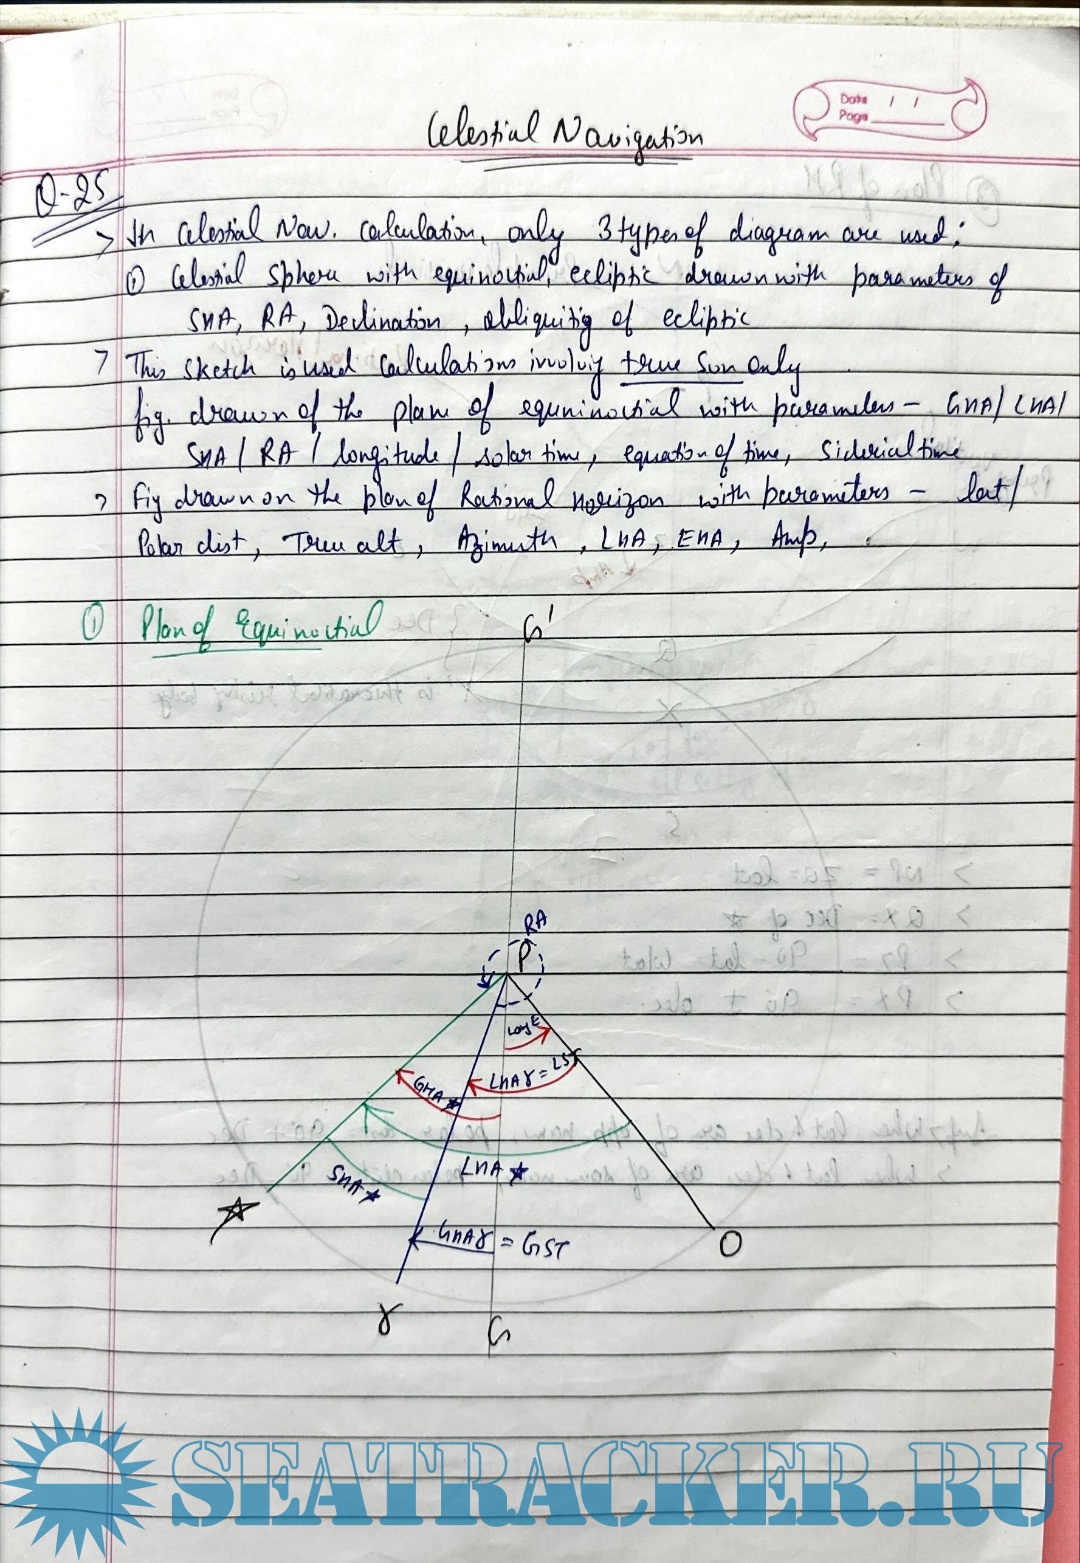 Date / /
Page
Celestial Navigation
Q-25
> In Celestial Nav. Calculation, only 3 types of diagram are used:
① Celestial Sphere with equinoctial, ecliptic drawn with parameters of
SHA, RA, Declination, obliquitiy of ecliptic
> This sketch is used Calculations involvig true Sun only
fig. drawn of the plane of equninoctial with parameters – GHA/ LHA/
SHA / RA / longitude / solar time, equation of time, Siderial time
> Fig drawn on the plan of Rational Horizon with parameters – lat/
Polar dist, True alt, Azimuth, LHA, EHA, Amp,
① Plan of Equinoctial
G'
RA
P
Long E
LHA♈ = LST
GHA★
LHA★
SHA★
GHA♈ = GST
O
♈
G
SEATRACKER.RU